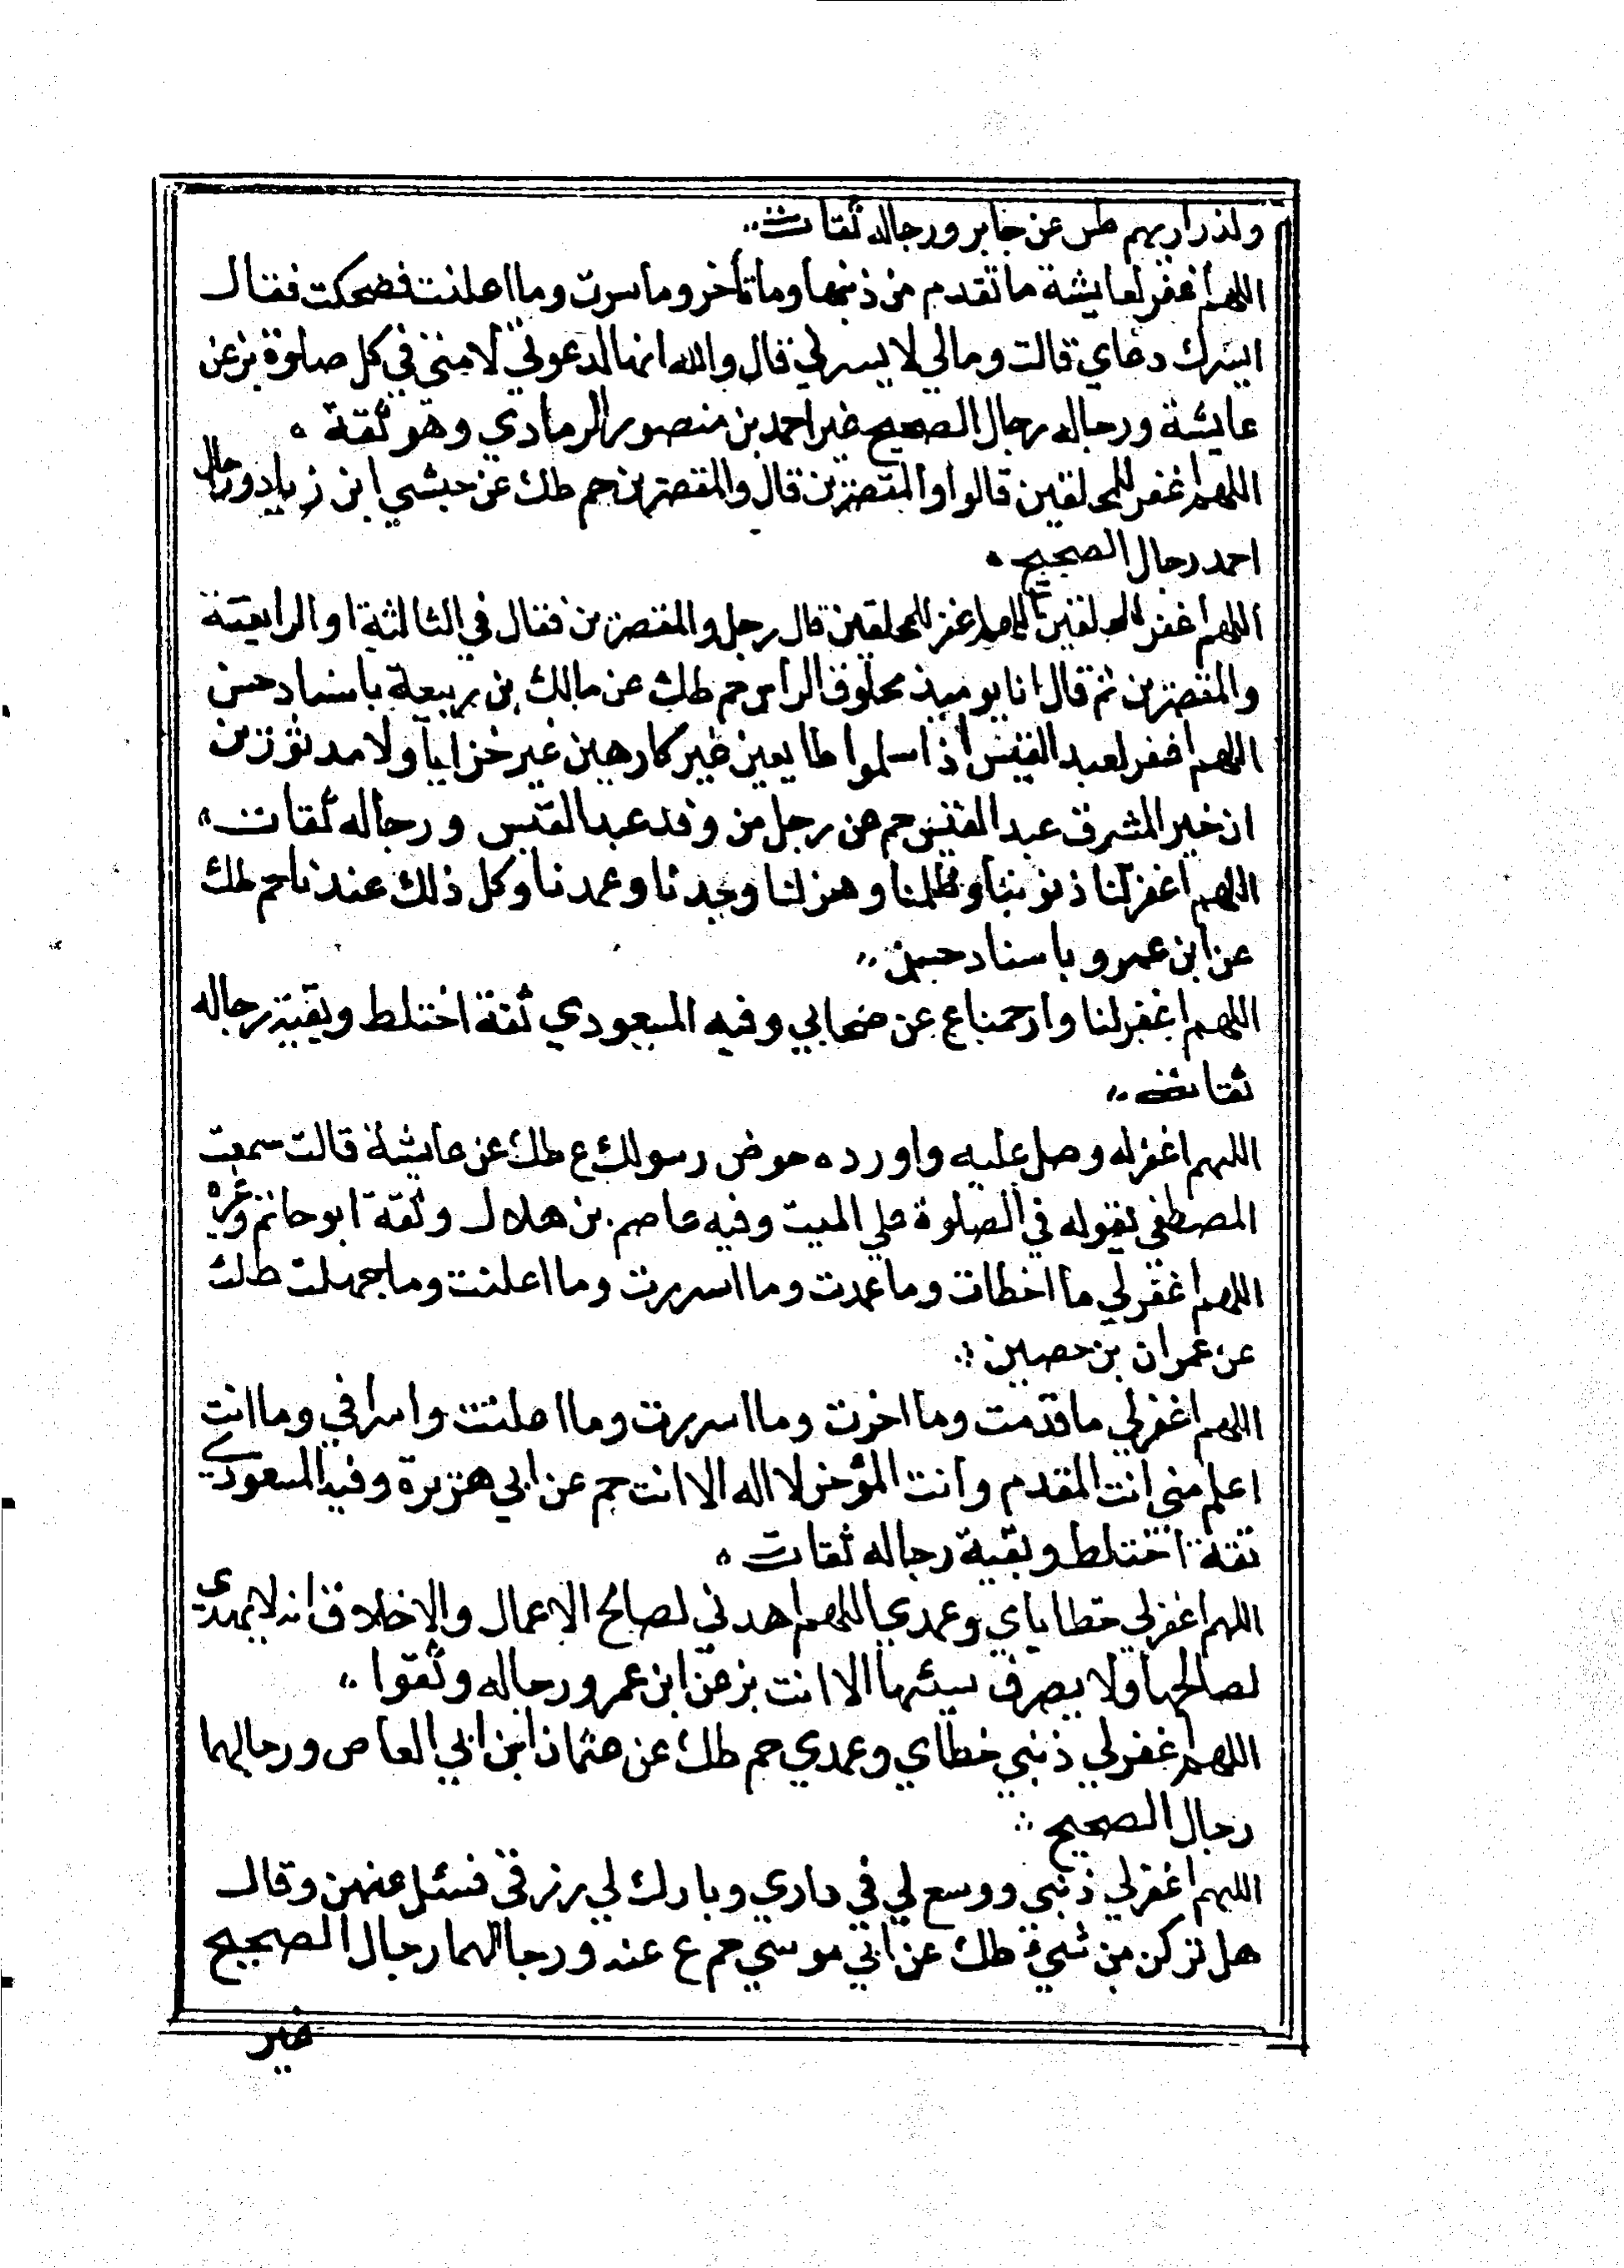 ولذراريهم طس عن جابر ورجاله ثقات
اللهم اغفر لعايشة ما تقدم من ذنبها وما تأخر وما سرت وما اعلنت فضحكت فقال
ايسرك دعاي قالت ومالي لا يسرني قال والله انها لدعوتي لامتي في كل صلوة بز عن
عايشة ورجاله رجال الصحيح غير احمد بن منصور الرمادي وهو ثقة
اللهم اغفر للمحلقين قالوا والمقصرين قال والمقصرين حم طك عن حبشي ابن زياد ورجال
احمد رجال الصحيح
اللهم اغفر للمحلقين اللهم اغفر للمحلقين قال رجل والمقصرين فقال في الثالثة او الرابعة
والمقصرين ثم قال انا يوميذ محلوق الراس حم طك عن مالك بن ربيعة باسناد حسن
اللهم اغفر لعبد القيس اذ اسلموا طايعين غير كارهين غير خزايا ولا مدثوزين
ان خير المشرق عبد القيس حم عن رجل من وفد عبد القيس ورجاله ثقات
اللهم اغفر لنا ذنوبنا وظلمنا وهزلنا وجدنا وعمدنا وكل ذلك عندنا حم طك
عن ابن عمرو باسناد حسن
اللهم اغفر لنا وارحمنا ع عن صحابي وفيه المسعودي ثقة اختلط وبقية رجاله
ثقات
اللهم اغفر له وصل عليه واورده حوض رسولك ع طك عن عايشة قالت سمعت
المصطفى يقوله في الصلوة علي الميت وفيه عاصم بن هلال وثقة ابو حاتم وغيره
اللهم اغفر لي ما اخطات وما عمدت وما اسررت وما اعلنت وما جهلت طك
عن عمران بن حصين
اللهم اغفر لي ما قدمت وما اخرت وما اسررت وما اعلنت واسرافي وما انت
اعلم مني انت المقدم وانت المؤخر لا اله الا انت حم عن ابي هريرة وفيه المسعودي
ثقة اختلط وبقية رجاله ثقات
اللهم اغفر لي خطاياي وعمدي اللهم اهدني لصالح الاعمال والاخلاق انه لا يهدي
لصالحها ولا يصرف سيئها الا انت بز عن ابن عمر ورجاله وثقوا
اللهم اغفر لي ذنبي خطاي وعمدي حم طك عن عثمان ابن ابي العاص ورجالهما
رجال الصحيح
اللهم اغفر لي ذنبي ووسع لي في داري وبارك لي رزقي فسئل عنهن وقال
هل تركن من شيء طك عن ابي موسي حم ع عنه ورجالهما رجال الصحيح
غير